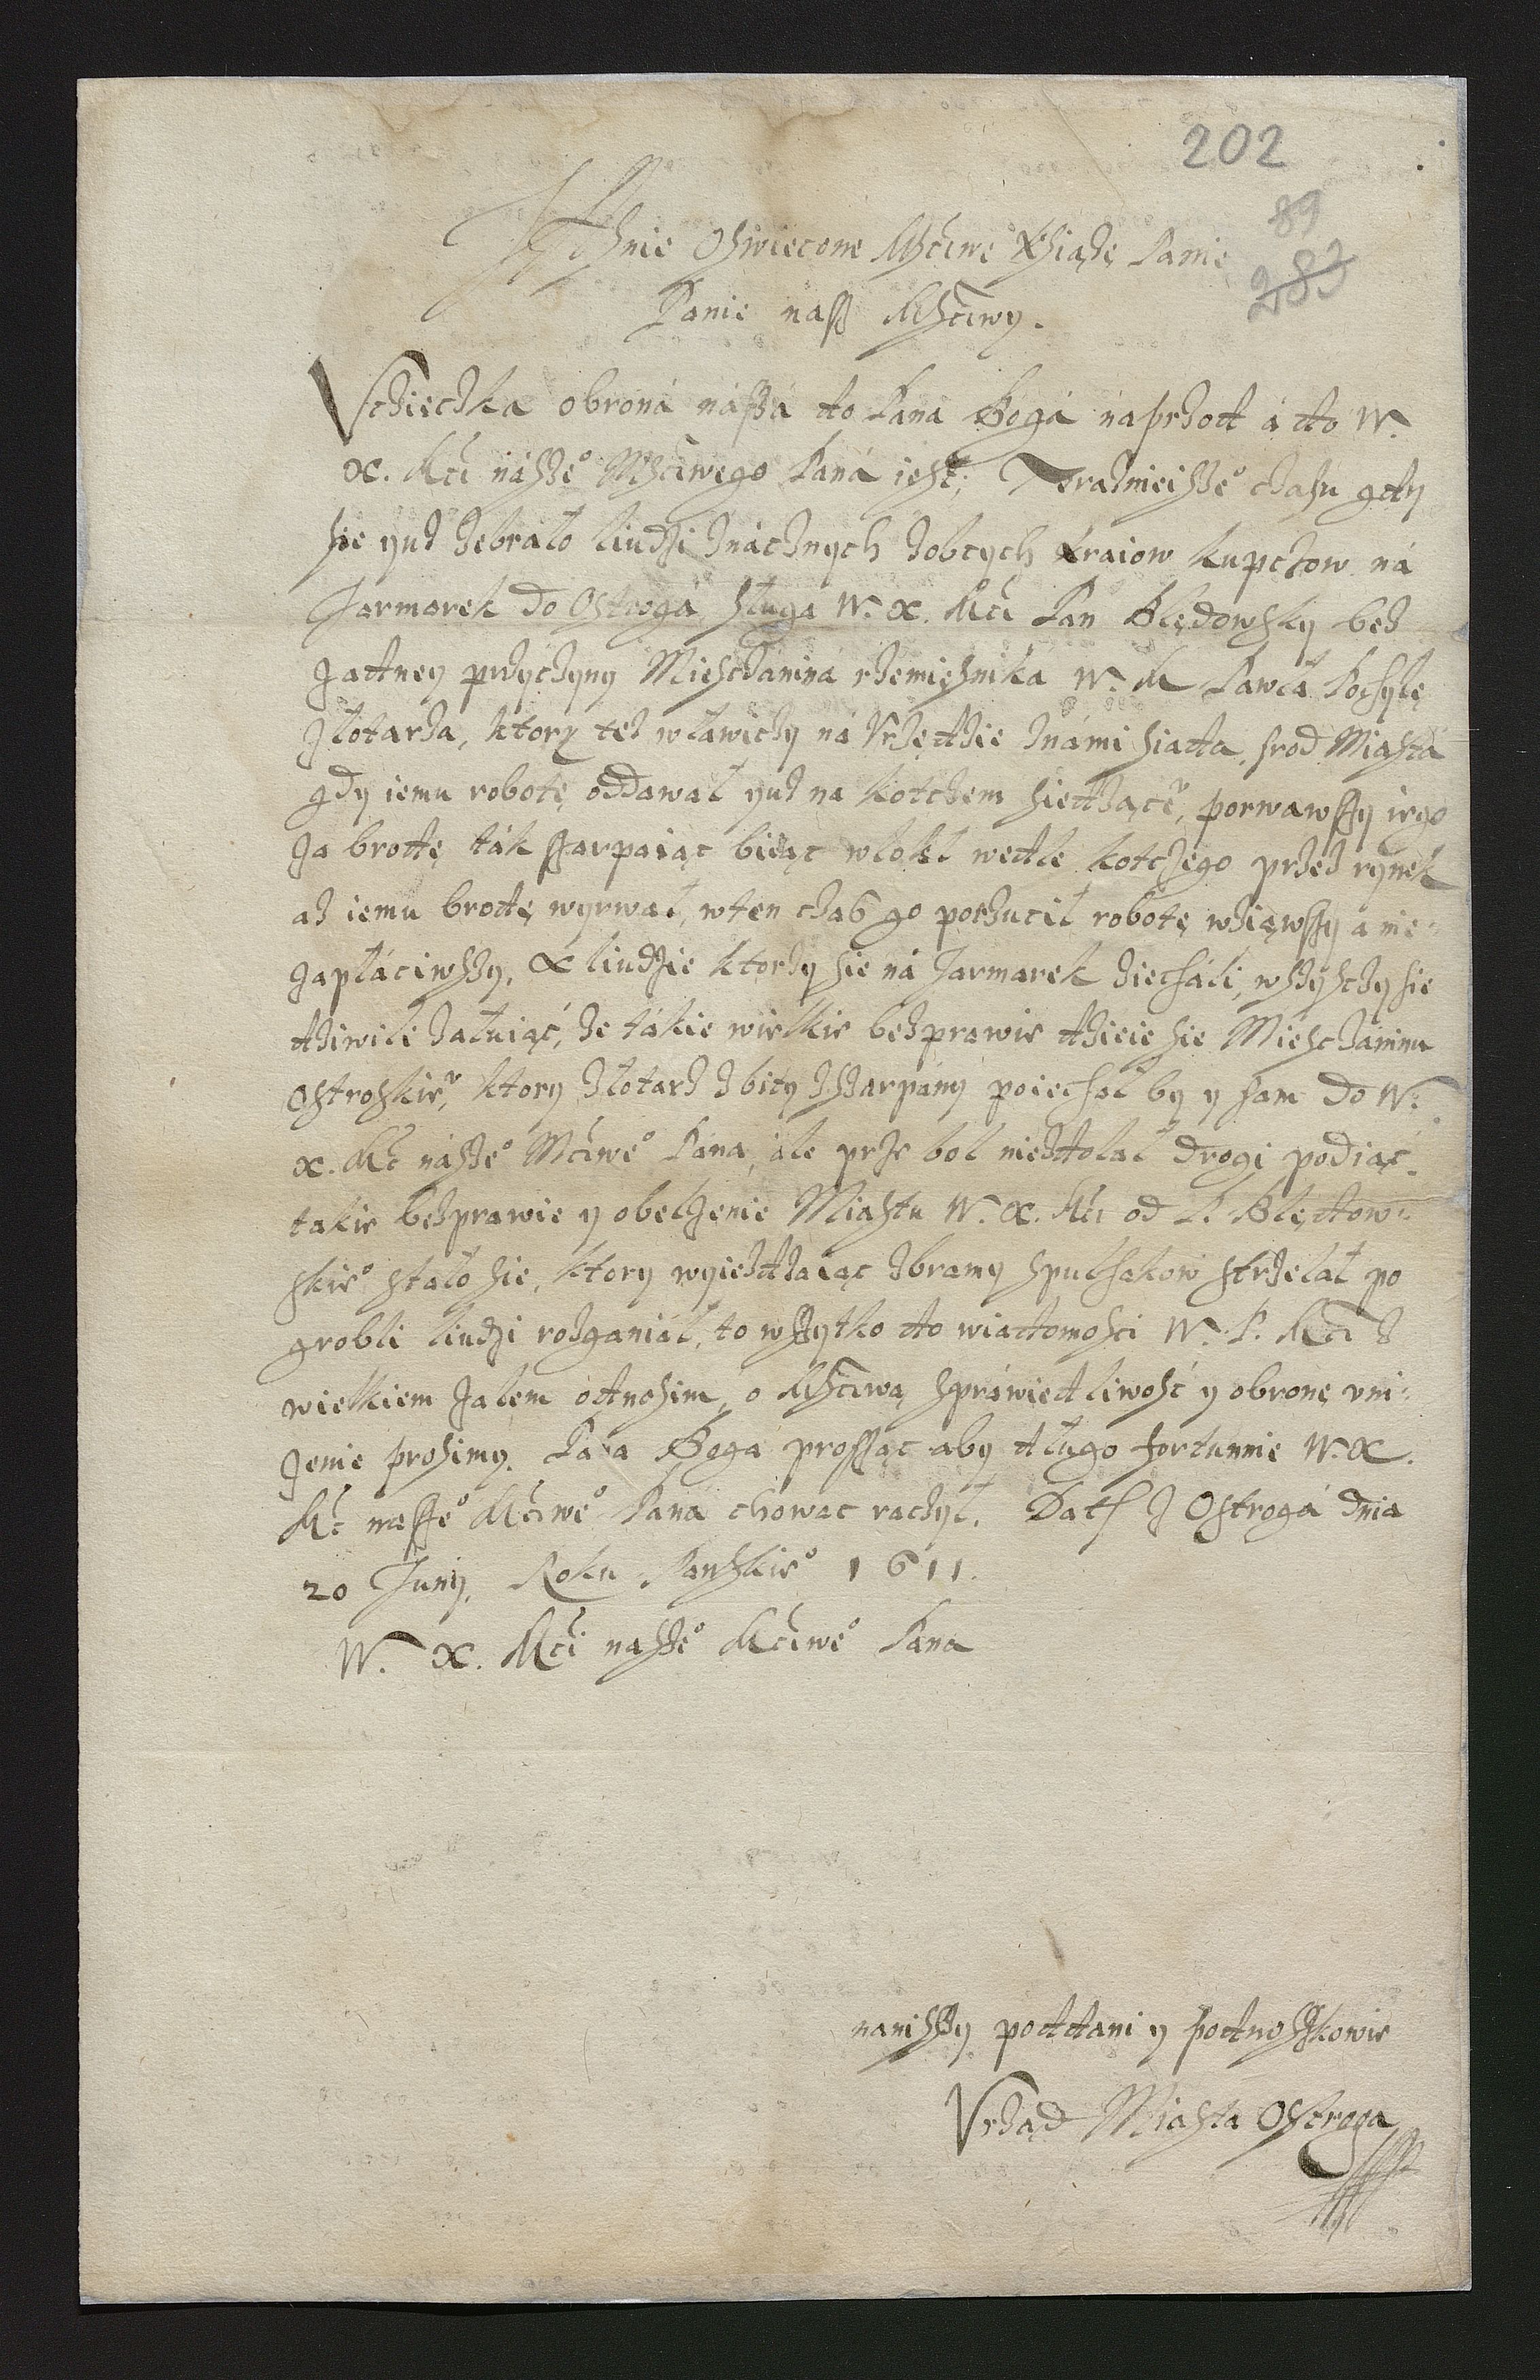 202
89
283
Jasnie Oswiecone Msciwe Xsiążę Panie
Panie nasz Msciwy.
Vcieczka obroná nászá do Pana Bogá naprzod á do W.
X. Mci násze° Msciwego Paná iest, Terazniejsze° czasu gdy
sie yuz zebrało liudzi znácznych zobcych kraiow kupczow ná
Jarmarek do Ostrogá, sługa W. X. Mci Pan Błędowsky bez
zadney przyczyny Miesczaniná rzemięsnika W. M Pawła
złotarza, ktory tez w ławiczy ná Vrzędzie známi siada, srod Miastá
gdy iemu robotę oddawał yuz na kotczem siedzące°, porwawszy iego
za brodę ták szarpaiąc biiąc wlokl wedle kotczego przez rynek
az iemu brodę wyrwał, wten czas go porzucił robotę wziąwszy a nie
zapłáciwszy, A liudzie ktorzy sie ná Jarmarek ziechali, wszysczy sie
dziwili załuiąc, ze tákie wielkie bezprawie dzieie sie Miesczáninu
Ostroskie°, ktory złotarz zbity zszarpány poiechał by y sam do W.
X. Mc násze° Mciwe° Pana, ále prze bol niezdolał drogi podiąc,
takie bezprawie y obelzenie Miastu W. X. Mci od P. Błędow
skie° stało sie, ktory wyiezdzaiąc zbramy spulhakow strzelał po
grobli liudzi rozganiał, to wszytko do wiadomosci W. X. Mci z
wielkiem zalem odnosim, o Msciwą spráwiedliwość y obronę vni
zenie prosimy. Pana Boga prosząc aby długo fortunnie W. X.
Mc nasze° Mciwe° Paná chowac raczył. Dat z Ostrogá dnia
20 Juny. Roku Panskie° 1611.
W. X. Mci nasze° Mciwe° Pana
naniszy poddani y podnoszkowie
Vrząd Miasta Ostroga